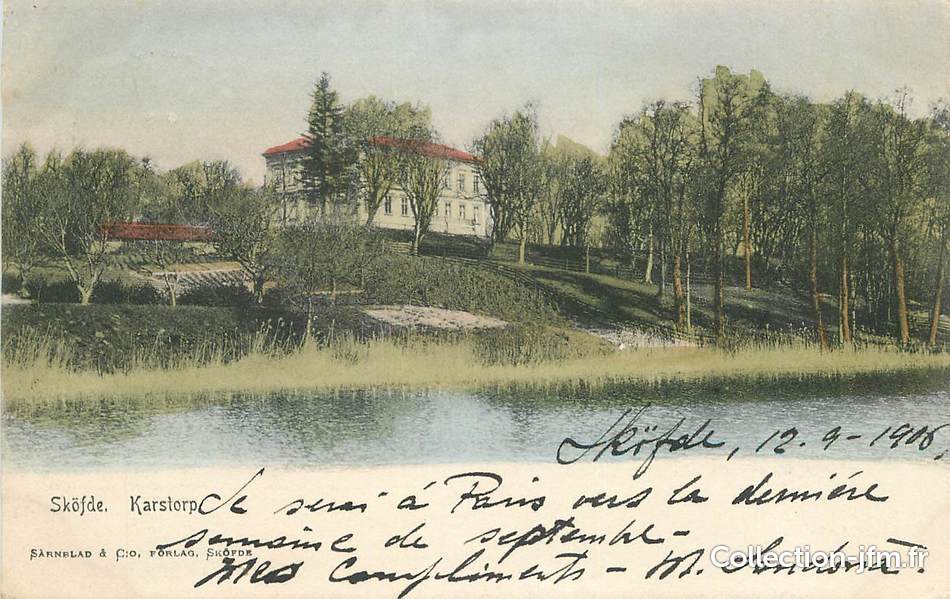 Sköfde, 12-9-1906.
Sköfde. Karstorp
Je serai à Paris vers la dernière
semaine de septembre-
SÄRNBLAD & C:O, FÖRLAG, SKÖFDE
Mes compliments - M.
Collection-jfm.fr